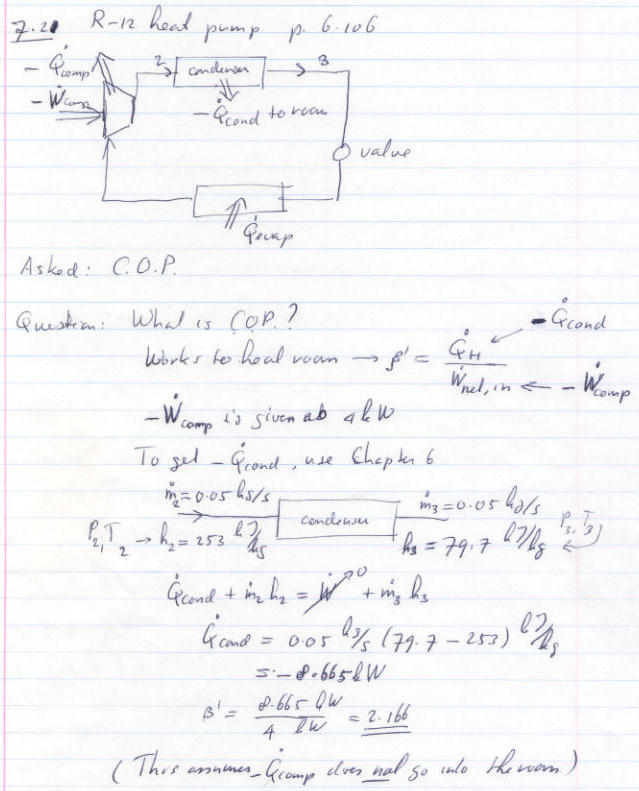 7.21 R-12 heat pump p. 6.106
- Q̇comp 2 condenser 3
- Ẇcomp
- Q̇cond to room
value
Q̇evap
Asked: C.O.P.
Question: What is C.O.P.? - Q̇cond
Works to heat room → β' = Q̇H / Ẇnet, in ← - Ẇcomp
- Ẇcomp is given as 4 kW
To get - Q̇cond, use Chapter 6
ṁ2 = 0.05 kg/s condenser ṁ3 = 0.05 kg/s
P2, T2 → h2 = 253 kJ/kg h3 = 79.7 kJ/kg P3, T3
Q̇cond + ṁ2 h2 = Ẇ 0 + ṁ3 h3
Q̇cond = 0.05 kg/s (79.7 - 253) kJ/kg
= - 8.665 kW
β' = 8.665 kW / 4 kW = 2.166
(This assumes - Q̇comp does not go into the room)